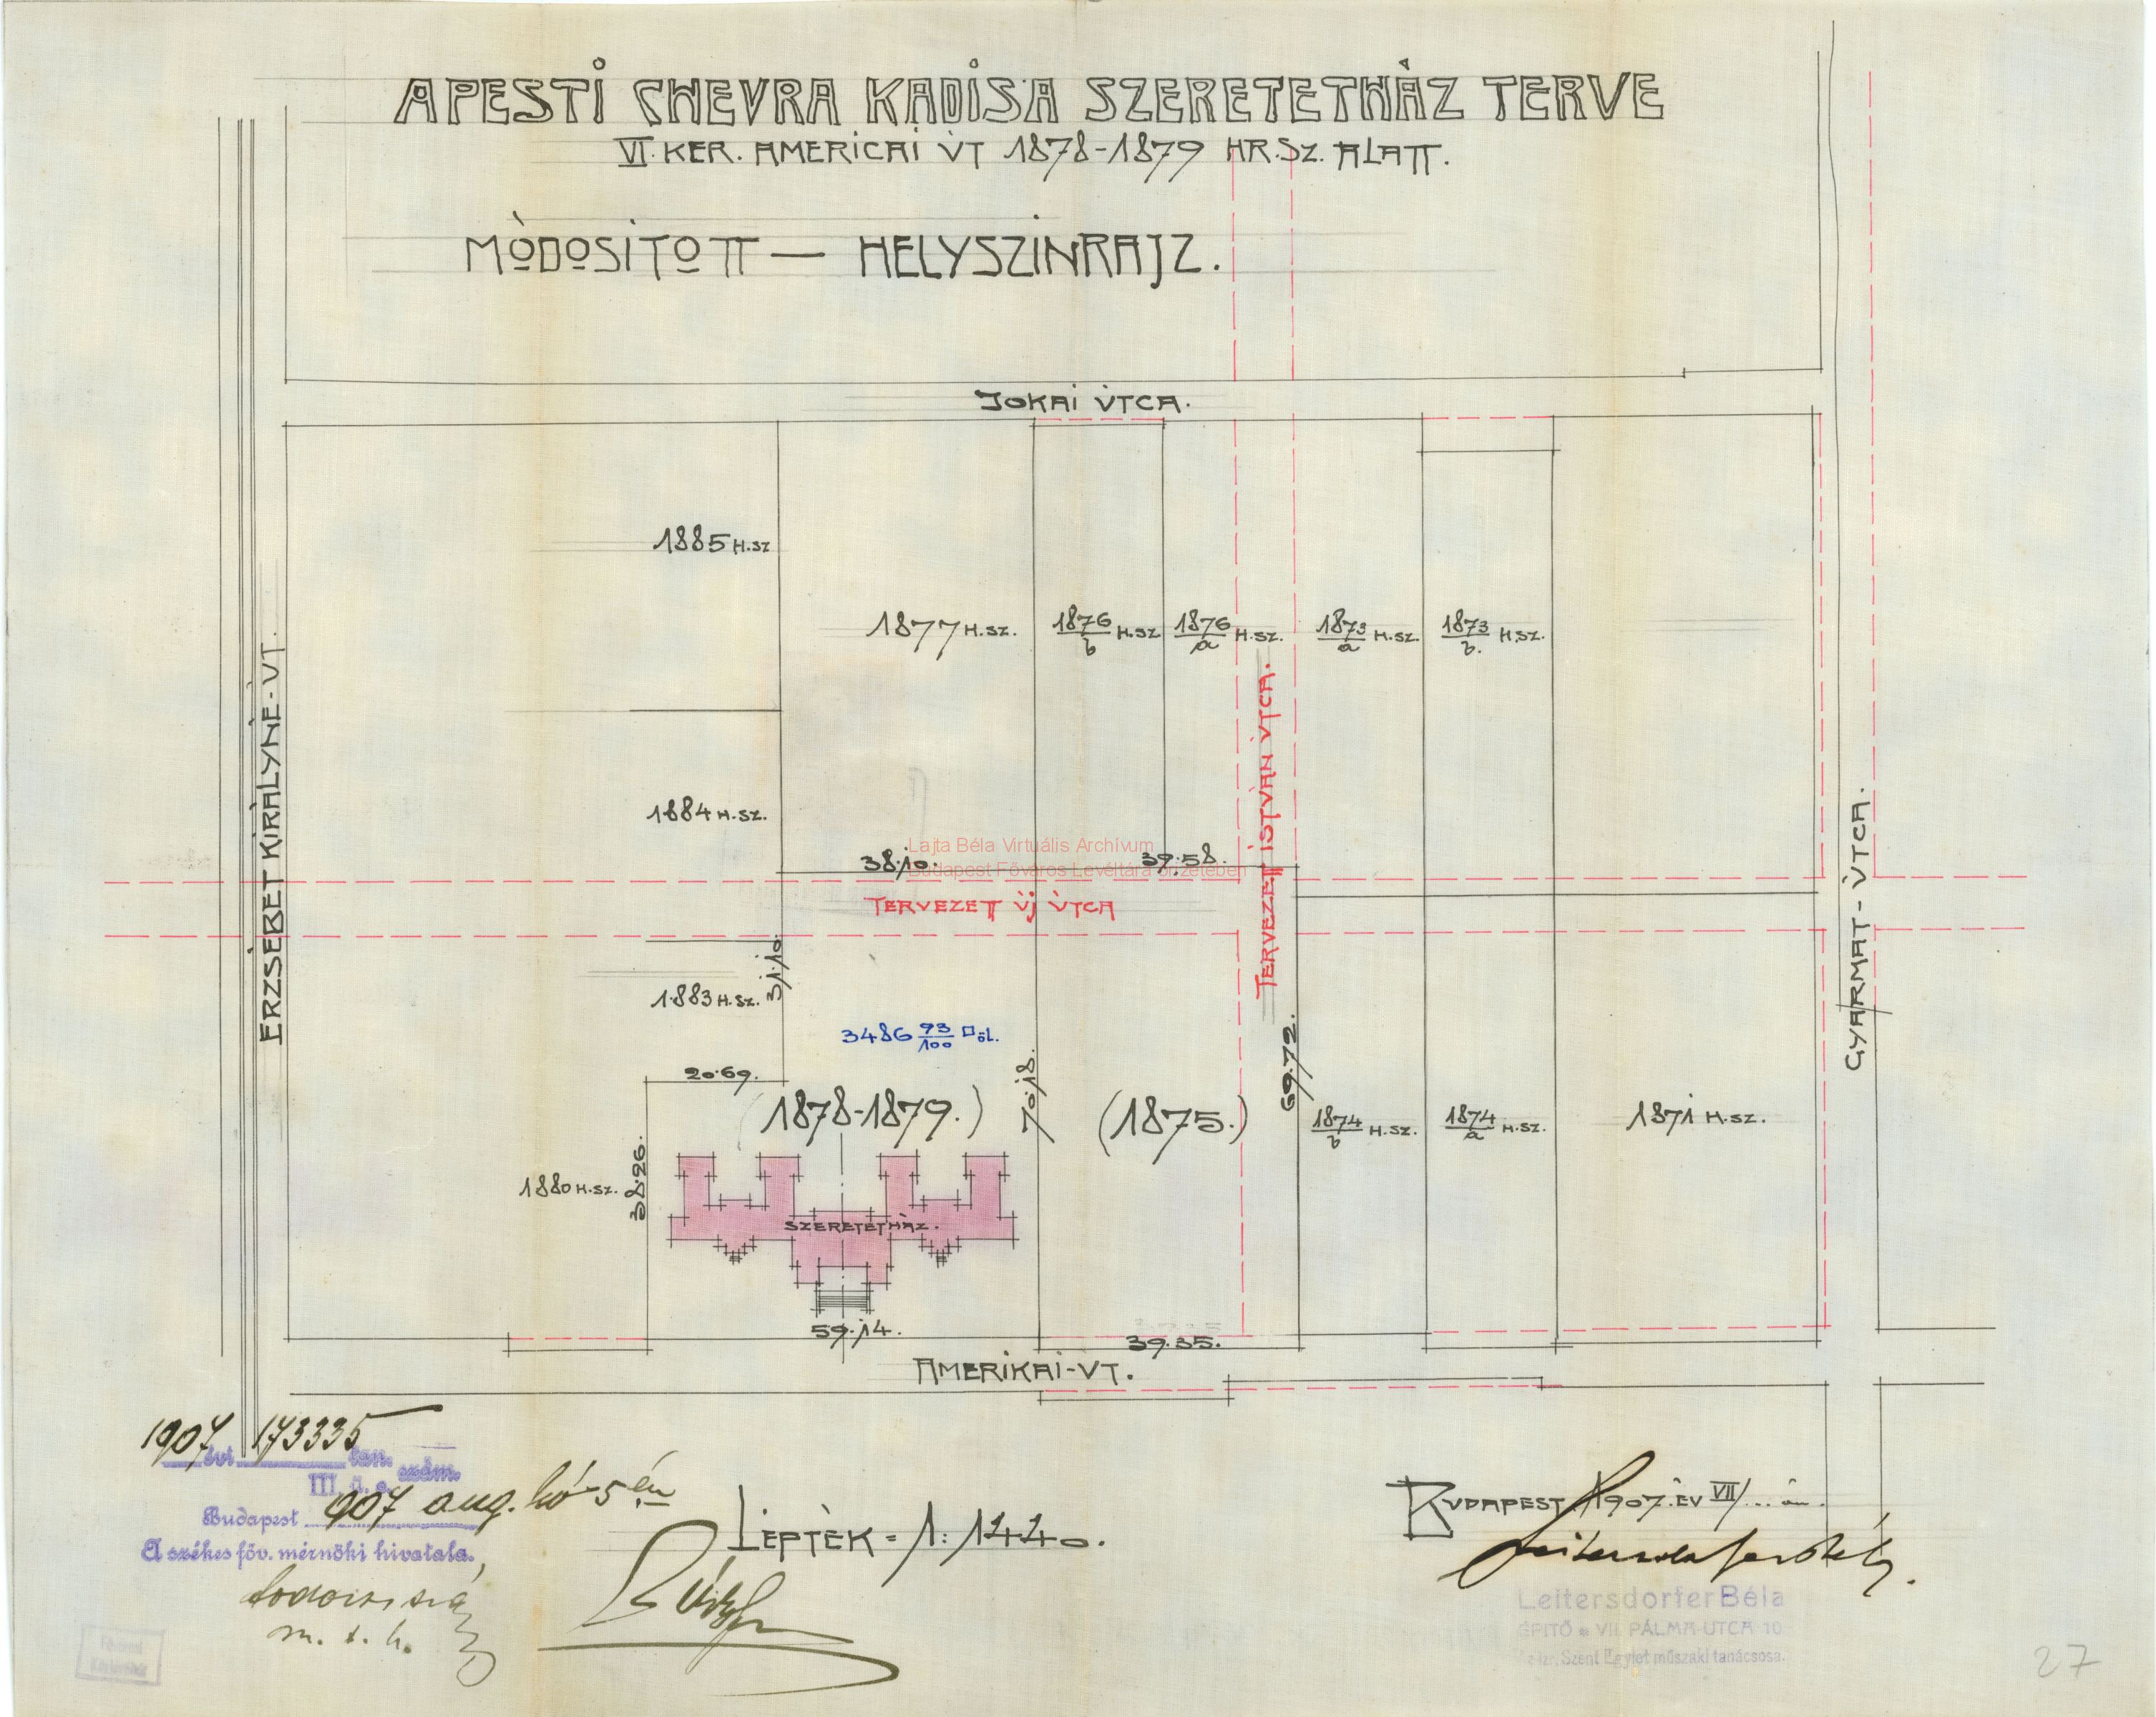 A PESTI CHEVRA KADISA SZERETETHÁZ TERVE
VI. KER. AMERICAI ÚT 1878-1879 HR.SZ. ALATT.
MÓDOSÍTOTT — HELYSZINRAJZ.
JOKAI ÚTCA.
1885 H.SZ
1877 H.SZ.
1876/b H.SZ
1876/a H.SZ.
1873/a H.SZ.
1873/b. H.SZ.
ERZSÉBET KIRÁLYNÉ-ÚT.
TERVEZETT ISTVÁN ÚTCA.
GYARMAT-ÚTCA.
1884 H.SZ.
Lajta Béla Virtuális Archívum
Budapest Főváros Levéltára őrizetében
38.10.
39.58.
TERVEZETT ÚJ ÚTCA
31.10.
1883 H.SZ.
3486 93/100 □öl.
20.69.
70.18.
69.72.
(1878-1879.)
(1875.)
1874/b H.SZ.
1874/a H.SZ.
1871 H.SZ.
1880 H.SZ.
38.26.
SZERETETHÁZ.
59.14.
39.35.
AMERIKAI-ÚT.
1907 évi 173335 tan. szám.
III ü. o.
Budapest 907 aug. hó 5 én
A székes főv. mérnöki hivatala.
m. t. h.
LÉPTÉK = 1:1440.
BUDAPEST, 1907. ÉV VII/... án.
Leitersdorfer Béla
ÉPITŐ • VII PÁLMA-UTCA 10
Szent Egylet műszaki tanácsosa.
27